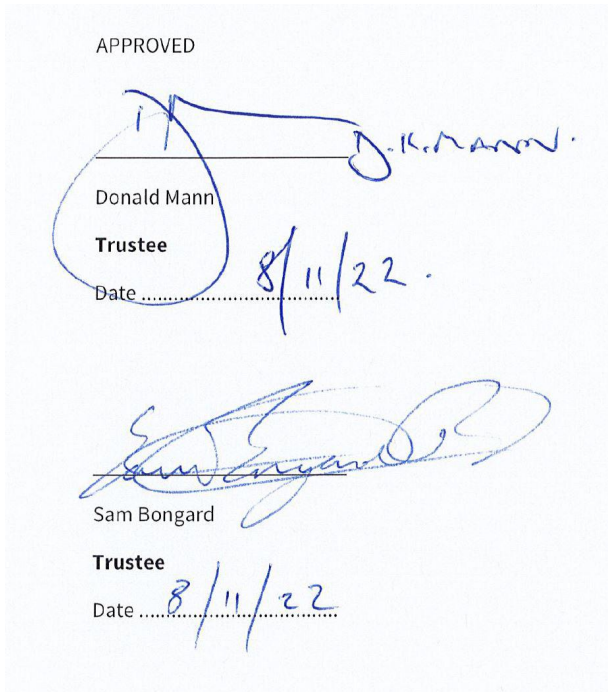 APPROVED
D.K.MANN.
Donald Mann
Trustee
Date ........................ 8/11/22.
Sam Bongard
Trustee
Date ........................ 8/11/22